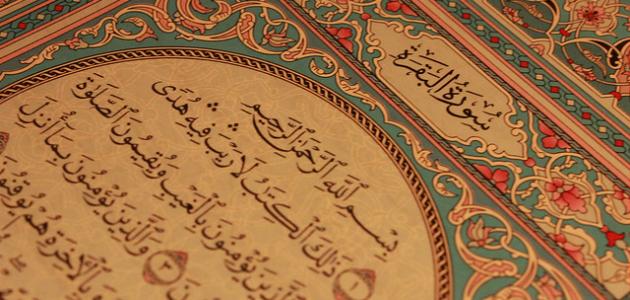 سُورَةُ البَقَرَةِ
بِسْمِ ٱللَّهِ ٱلرَّحْمَٰنِ ٱلرَّحِيمِ
١ ذَٰلِكَ ٱلْكِتَٰبُ لَا رَيْبَ فِيهِ هُدًى
ٱلَّذِينَ يُؤْمِنُونَ بِٱلْغَيْبِ وَيُقِيمُونَ ٱلصَّلَوٰةَ
٣ وَٱلَّذِينَ يُؤْمِنُونَ بِمَآ أُنزِلَ
وَبِٱلْأَخِرَةِ هُمْ